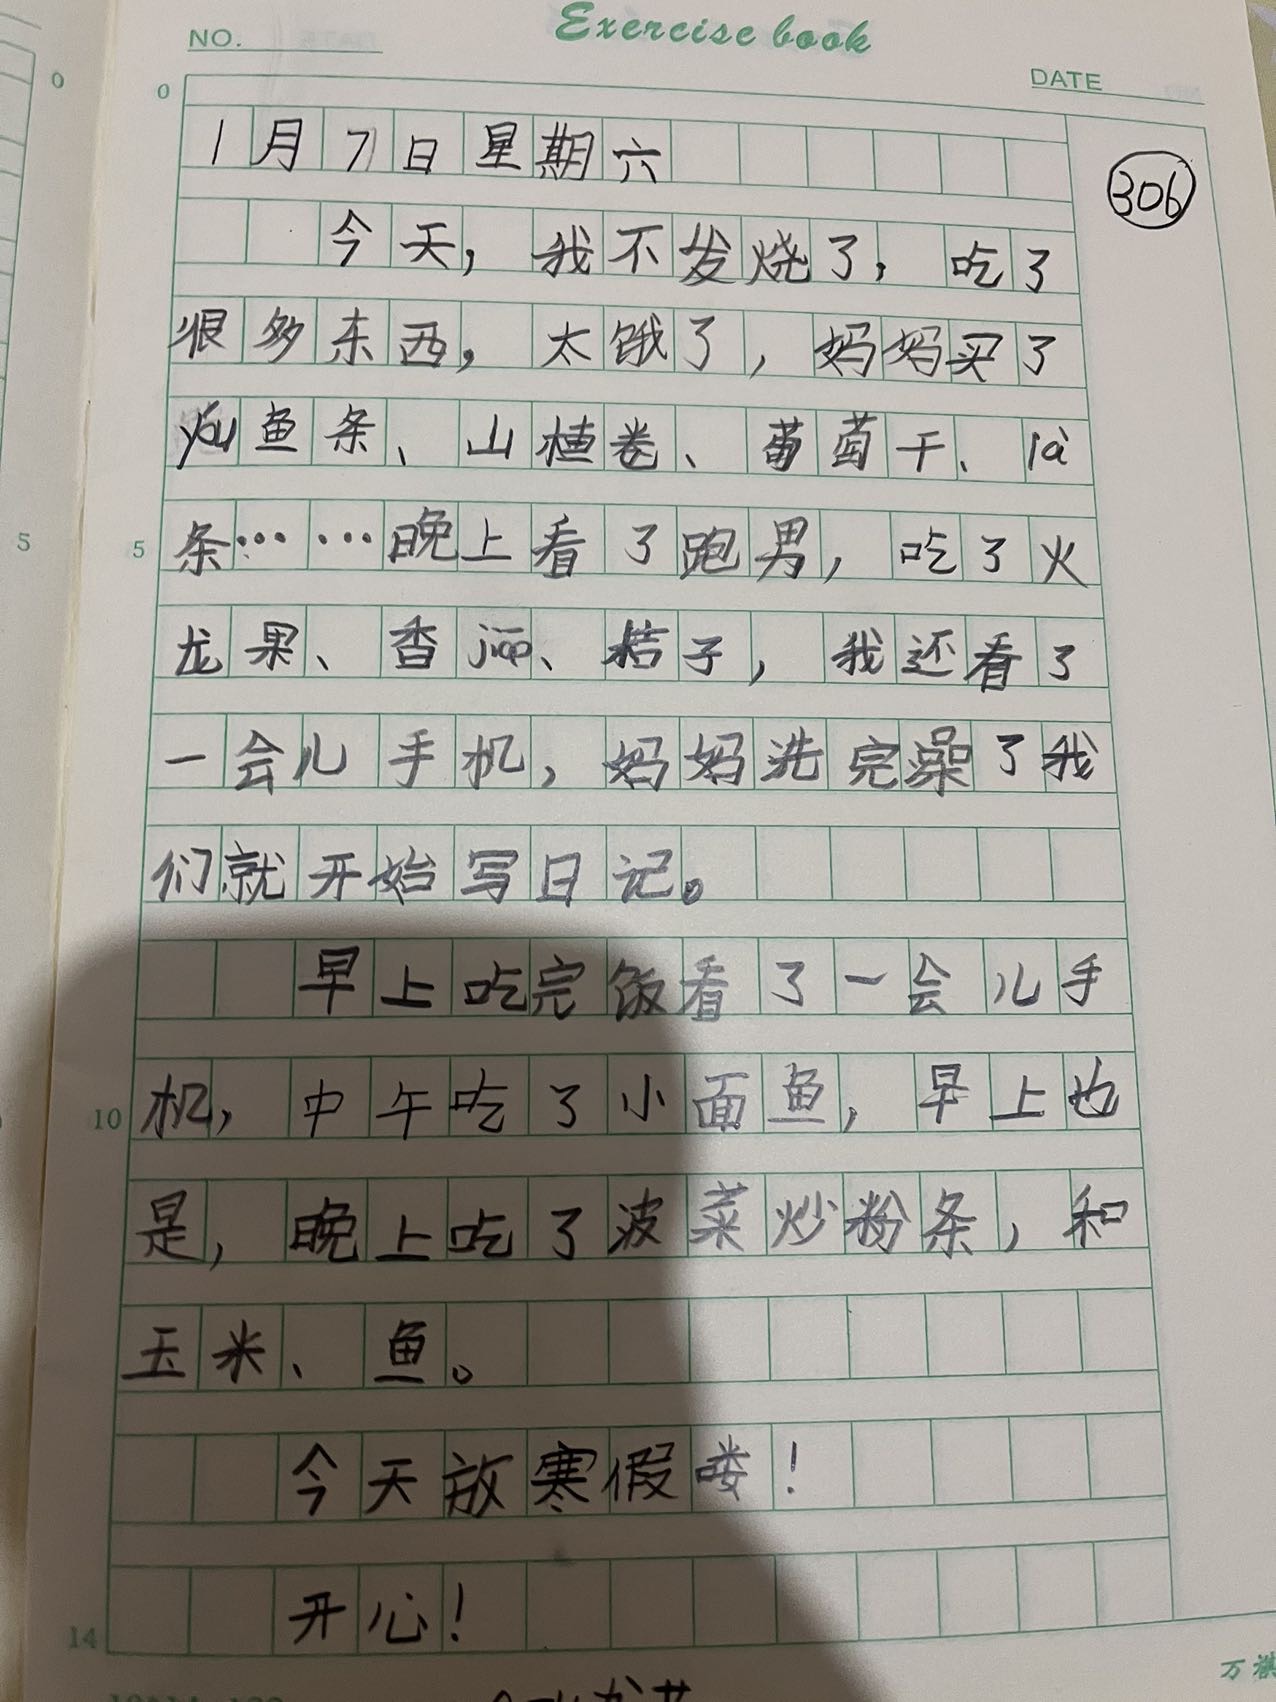 Exercise book
NO.
DATE
0
0
1月7日星期六
306
今天，我不发烧了，吃了
很多东西，太饿了，妈妈买了
yóu鱼条、山楂卷、葡萄干、là
5
5
条……晚上看了跑男，吃了火
龙果、香jiāo、桔子，我还看了
一会儿手机，妈妈洗完澡了我
们就开始写日记。
早上吃完饭看了一会儿手
10
机，中午吃了小面鱼，早上也
是，晚上吃了波菜炒粉条，和
玉米、鱼。
今天放寒假喽！
14
开心！
万祺